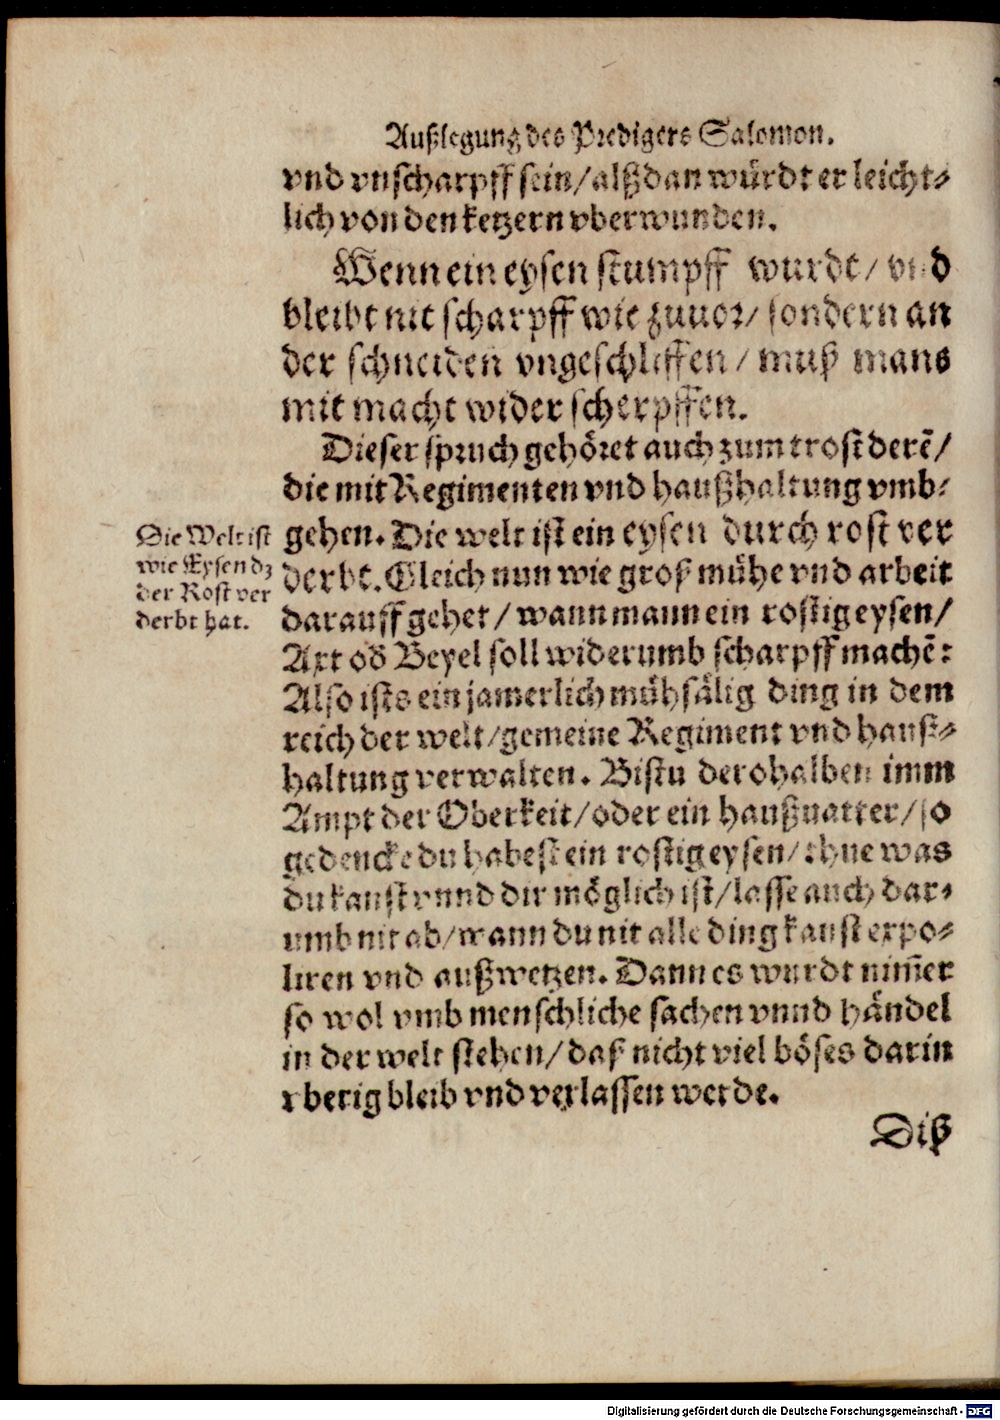 Außlegung des Predigers Salomon.
vnd vnscharpff sein/ alßdan würdt er leicht⸗
lich von den ketzern vberwunden.
Wenn ein eysen stumpff wurdt/ vnd
bleibt nit scharpff wie zuuor/ sondern an
der schneiden vngeschliffen/ muß mans
mit macht wider scherpffen.
Dieser spruch gehöret auch zum trost derē/
die mit Regimenten vnd haußhaltung vmb⸗
gehen. Die welt ist ein eysen durch rost ver
derbt. Gleich nun wie groß mühe vnd arbeit
darauff gehet/ wann mann ein rostig eysen/
Axt od Beyel soll widerumb scharpff machē:
Also ists ein jamerlich mühsälig ding in dem
reich der welt/ gemeine Regiment vnd hauß⸗
haltung verwalten. Bistu derohalben imm
Ampt der Oberkeit/ oder ein haußuatter/ so
gedencke du habest ein rostig eysen/ thue was
du kanst vnnd dir möglich ist/ lasse auch dar⸗
umb nit ab/ wann du nit alle ding kanst expo⸗
liren vnd außwetzen. Dann es wurdt nim̄er
so wol vmb menschliche sachen vnnd händel
in der welt stehen/ daß nicht viel böses darin
vberig bleib vnd verlassen werde.
Die Welt ist
wie Eysen dz
der Rost ver
derbt hat.
Diß
Digitalisierung gefördert durch die Deutsche Forschungsgemeinschaft - DFG